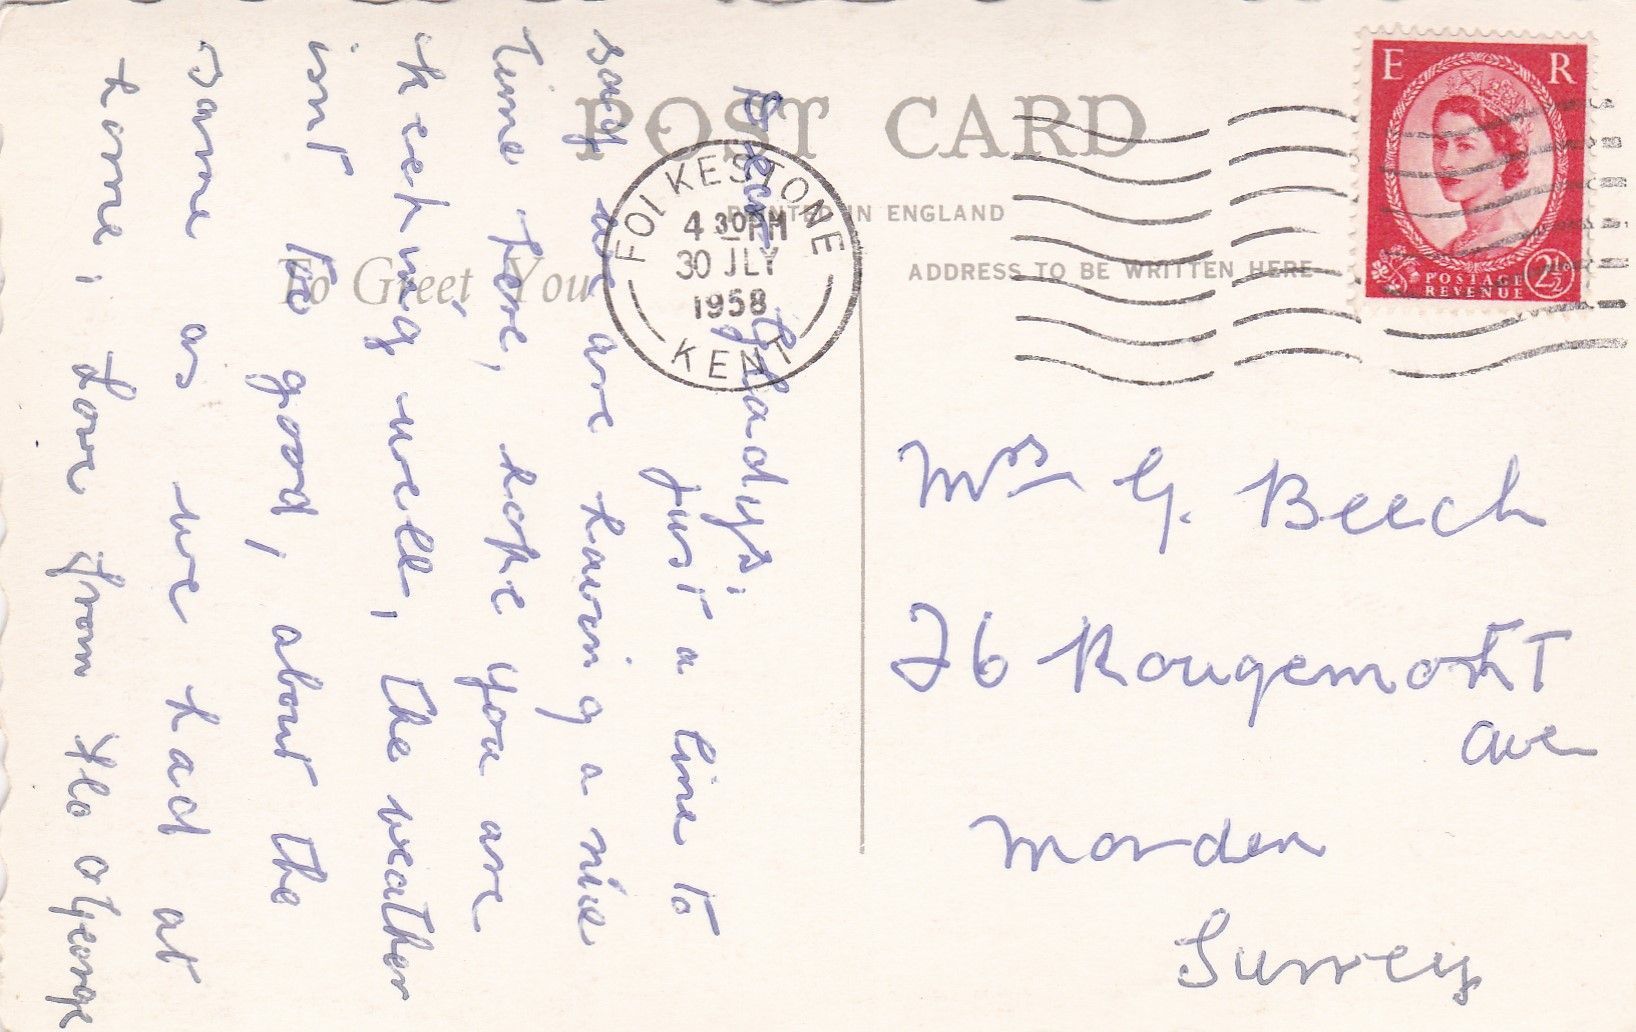 POST CARD
PRINTED IN ENGLAND
To Greet You
ADDRESS TO BE WRITTEN HERE
FOLKESTONE
4 30 PM
30 JLY
1958
KENT
E R
POSTAGE
REVENUE
2½
Dear Gladys,
just a line to
say we are having a nice
time here, hope you are
keeping well, the weather
isnt to good, about the
same as we had at
home, Love from Flo & George
Mrs G. Beech
26 Rougemont
ave
Morden
Surrey